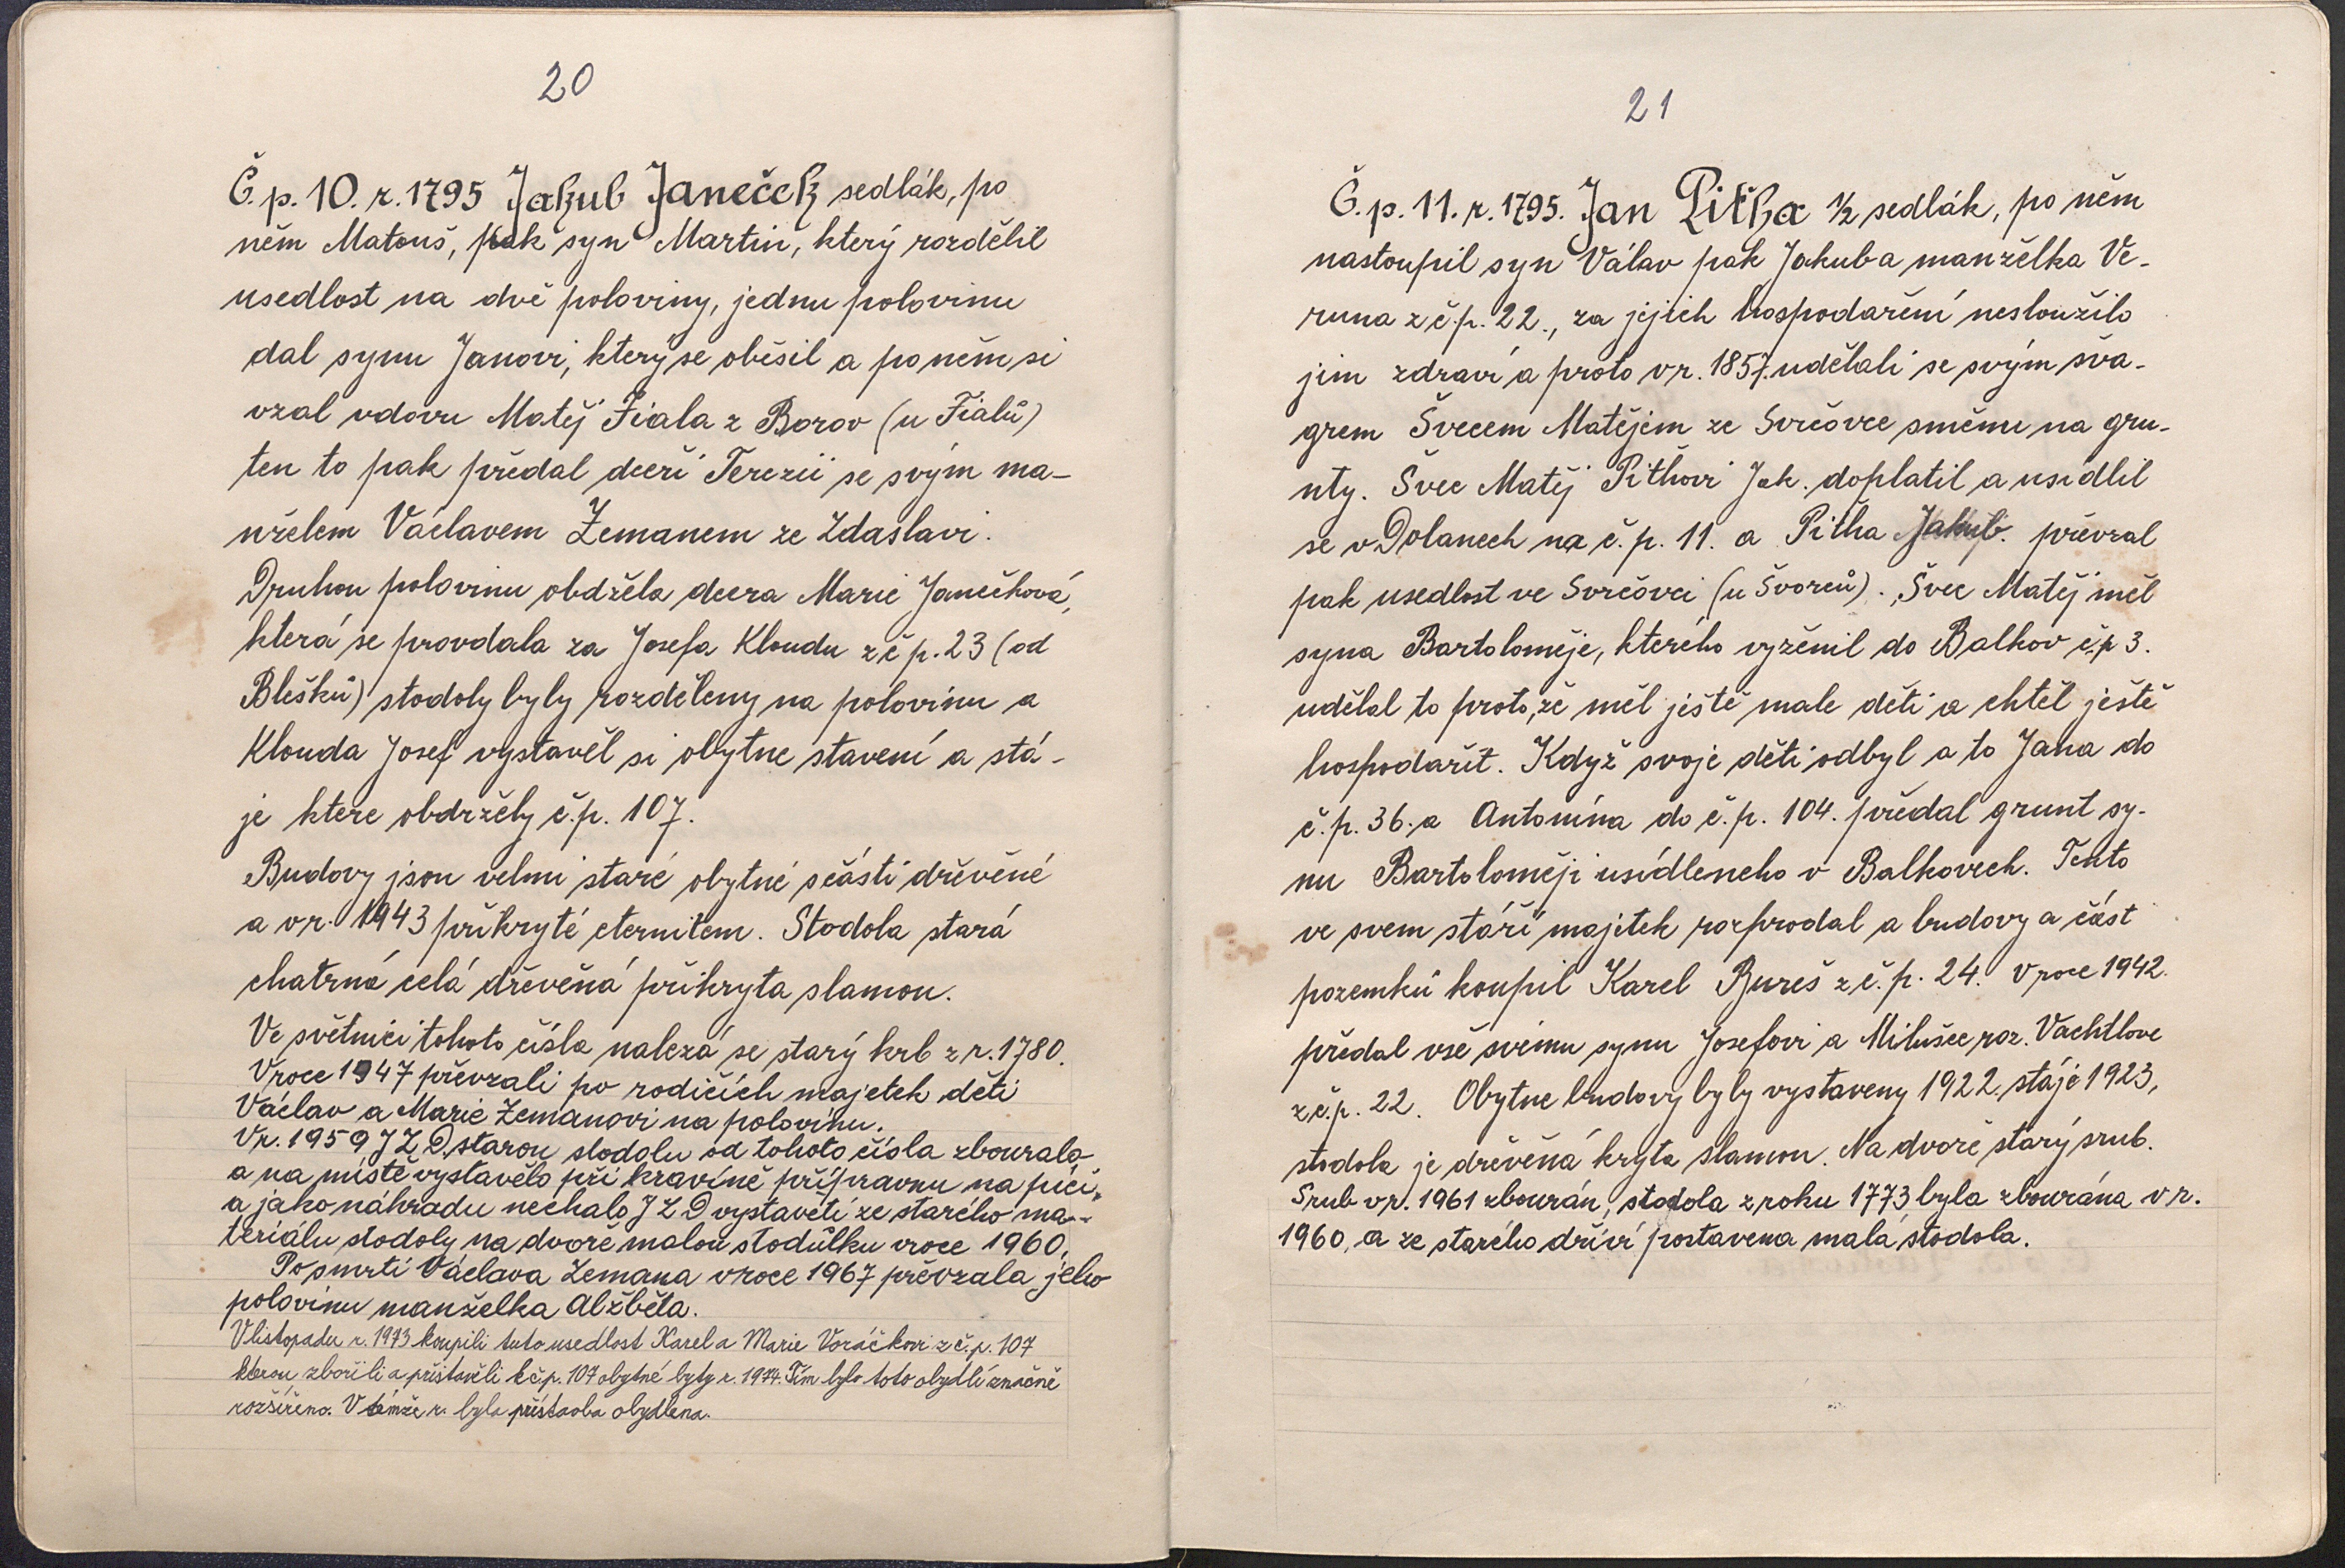 20
Č.p. 10. r. 1795 Jakub Janeček sedlák, po
něm Matouš, pak syn Martin, který rozdělil
usedlost na dvě poloviny, jednu polovinu
dal synu Janovi, který se oběsil a po něm si
vzal vdovu Matěj Fiala z Borov (u Fialů)
ten to pak předal dceři Terezii se svým ma-
nželem Václavem Zemanem ze Zdaslavi.
Druhou polovinu obdžela dcera Marie Janečková,
která se provdala za Josefa Kloudu z č p. 23 (od
Blešků) stodoly byly rozděleny na polovinu a
Klouda Josef vystavěl si obytne stavení a stá-
je ktere obdržely č.p. 107.
Budovy jsou velmi staré obytné sčásti dřevěné
a v r. 1943 přikryté eternitem. Stodola stará
chatrná celá dřevěná přikryta slamou.
Ve světnici tohoto čísla nalezá se starý krb z r. 1780.
Vroce 1947 převzali po rodičích majetek děti
Václav a Marie Zemanovi na polovinu.
Vr. 1959 JZD. starou stodolu od tohoto čísla zbouralo
a na místě vystavělo při kravíně přípravnu na píci,
a jako náhradu nechalo JZD vystavěti ze starého ma-
teriálu stodoly na dvoře malou stodůlku vroce 1960.
Po smrti Václava Zemana vroce 1967 převzala jeho
polovinu manželka Alžběta.
V listopadu r. 1973 koupili tuto usedlost Karel a Marie Voráčkovi z č.p. 107
kterou zbořili a přistavěli k čp. 107 obytné byty r. 1974. Tím bylo toto obydlí značně
rozšířeno. V témže r. byla přístavba obydlena.
21
Č.p. 11. r. 1795. Jan Pitha 1/2 sedlák, po něm
nastoupil syn Válav pak Jakub a manželka Ve-
runa z č.p. 22., za jejich hospodaření nesloužilo
jim zdraví a proto v r. 1857. udělali se svým šva-
grem Švecem Matějem ze Svrčovce směnu na gru-
nty. Švec Matěj Pithovi Jak. doplatil a usídlil
se v Dolanech na č.p. 11. a Pitha Jakub. převzal
pak usedlost ve Svrčovci (u Švorců). Švec Matěj měl
syna Bartoloměje, kterého vyženil do Balkov č.p 3.
udělal to proto, že měl ještě male děti a chtěl ještě
hospodařit. Když svoje děti odbyl a to Jana do
č.p. 36. a Antonína do č.p. 104. předal grunt sy-
nu Bartoloměji usídleneho v Balkovech. Tento
ve svem stáří majitek rozprodal a budovy a část
pozemků koupil Karel Bureš z č.p. 24. v roce 1942.
předal vše svému synu Josefovi a Milušce roz. Vachtlove
z č.p. 22. Obytne budovy byly vystaveny 1922. stáje 1923,
stodola je dřevěná kryta slamou. Na dvoře starý srub.
Srub v r. 1961 zbourán, stodola z roku 1773 byla zbourána v r.
1960, a ze starého dříví postavena malá stodola.